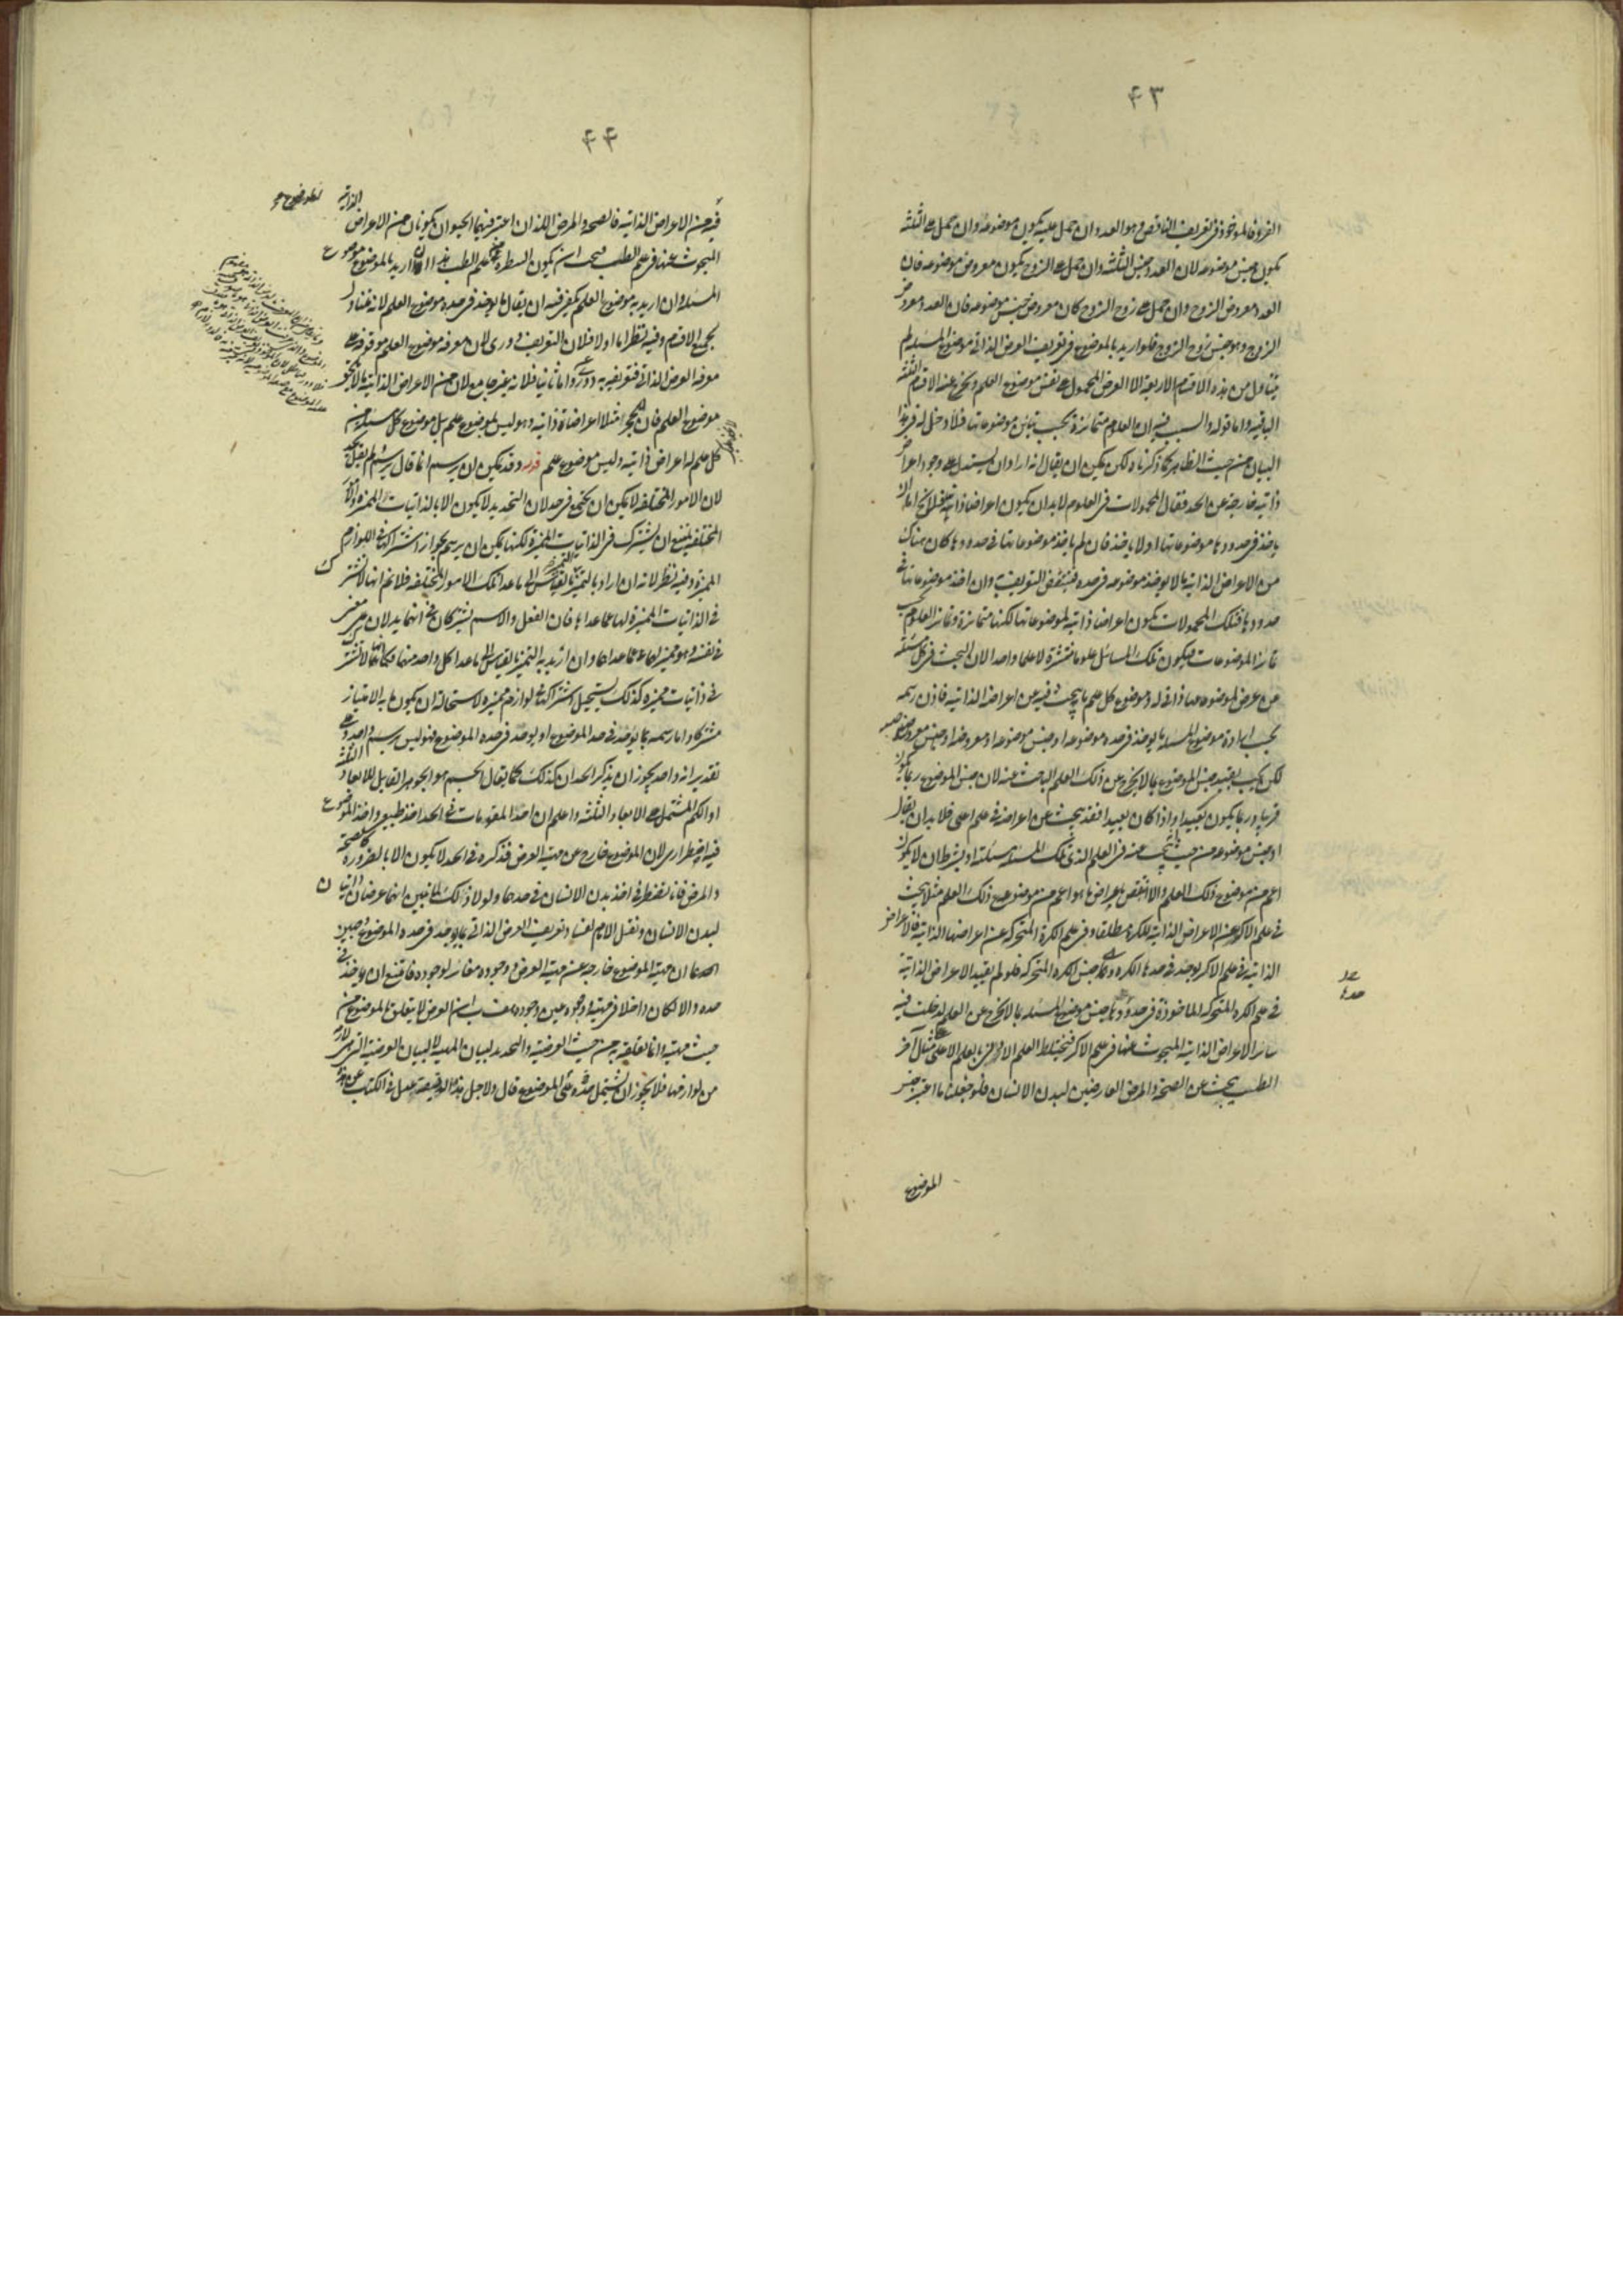 ٤٣
الفرد فالموخوذ فى تعريف الناقص هو العدد وان حمل عليه يكون موضوعه وان حمل على الثلثة
يكون جنس موضوعه لان العدد جنس الثلثة وان حمل على الزوج يكون معروض موضوعه فان
العدد معروض الزوج وان حمل على زوج الزوج كان معروض جنس موضوعه فان العدد معروض
الزوج وهو جنس زوج الزوج فلو اريد بالموضوع فى تعريف العرض الذاتى موضوع المسئلة لم
يتناول من هذه الاقسام الاربعة الا العرض المحمول على نفس موضوع العلم ويخرج عنه الاقسام الثلثة
الباقية واما قوله والسبب فيه ان العلوم متمايزة بحسب تباين موضوعاتها فلا دخل له فى هذا
البيان من حيث الظاهر كما ذكرناه لكن يمكن ان يقال انه اراد ان يستدل على وجود اعراض
ذاتية خارجة عن الحد فقال المحمولات فى العلوم لابد ان يكون اعراضا ذاتية فلا يخ اما ان
ياخذ فى حدودها موضوعاتها اولا ياخذ فان لم ياخذ موضوعاتها فى حدودها كان هناك
من الاعراض الذاتية ما لا يوخذ موضوعه فى حده فينتقض التعريف وان اخذ موضوعاتها فى
حدودها فتلك المحمولات يكون اعراضا ذاتية لموضوعاتها لكنها متمايزة وتمايز العلوم بحسب
تمايز الموضوعات فيكون تلك المسائل علوما منتشرة لا علما واحدا لان البحث فى كل مسئلة
من عرض لموضوعها ذاتى له وموضوع كل علم ما يبحث فيه عن اعراضه الذاتية فاذن رسمه
بحسب ارادة موضوع المسئلة ما يوخذ فى حده موضوعه او جنس موضوعه او معروضه او جنس معروضه
لكن يجب تقييد جنس الموضوع بما لا يخرج عن ذلك العلم الباحث عنه لان جنس الموضوع ربما يكون
قريبا وربما يكون بعيدا واذا كان بعيدا فقد يبحث عن اعراضه فى علم اعلى فلا بد ان يقال
او جنس موضوعه من حيث يبحث عنه فى العلم الذى تلك المسئلة مسئلته او بشرط ان لا يكون
اعم من موضوع ذلك العلم والا انتقض باعراض ما هو اعم من موضوع ذلك العلم مثلا يبحث
فى علم الاكر عن الاعراض الذاتية للكرة مطلقا وفى علم الكرة المتحركة عن اعراضها الذاتية فالاعراض
الذاتية فى علم الاكر يوخذ فى حدها الكرة وهى جنس الكرة المتحركة فلو لم يقيد الاعراض الذاتية
فى علم الكرة المتحركة الماخوذة فى حدودها جنس موضوع المسئلة بما لا يخرج عن العلم لدخلت فيه
سائر الاعراض الذاتية المبحوث عنها فى علم الاكر فيختلط العلم الادنى بالعلم الاعلى مثال آخر
الطب يبحث عن الصحة والمرض العارضين لبدن الانسان فلو جعلنا ما اعتبر جنس
الموضوع
٤٤
فيه من الاعراض الذاتية فالصحة والمرض اللذان اعتبر فيهما الحيوان يكونان من الاعراض الذاتية
المبحوث عنها فى علم الطب فيجب ان يكون البيطرة من علم الطب هذا اذا اريد بالموضوع موضوع
المسئلة وان اريد به موضوع العلم يكفى فيه ان يقال ما يوخذ فى حده موضوع العلم لانه متناول
لجميع الاقسام وفيه نظر اما اولا فلان التعريف دورى لان معرفة موضوع العلم موقوفة على
معرفة العرض الذاتى فتعريفه به دور واما ثانيا فلانه غير جامع لان من الاعراض الذاتية ما لا يلحق
موضوع العلم فان للحجر مثلا اعراضا ذاتية وهو ليس لموضوع علم بل موضوع كل مسئلة من
كل علم له اعراض ذاتية وليس موضوع علم قوله وقد يمكن ان يرسم انما قال يرسم ولم يقل يحد
لان الامور المختلفة لا يمكن ان يجتمع فى حد لان التحديد لا يكون الا بالذاتيات المميزة والامور
المختلفة يمتنع ان يشترك فى الذاتيات المميزة لكنها يمكن ان يرسم بجواز اشتراكها فى اللوازم
المميزة وفيه نظر لانه ان اراد بالتميز التميز بالقياس الى ما عدا تلك الامور المختلفة فلا نم انها لا تشترك
فى الذاتيات المميزة لها عما عداها فان الفعل والاسم يشتركان فى انهما يدلان على معنى
فى نفسه وهو مميز لهما عما عداهما وان اريد به التميز بالقياس الى ما عدا كل واحد منها فكما انها لا تشترك
فى ذاتيات مميزة كذلك يستحيل اشتراكها فى لوازم مميزة لاستحالة ان يكون ما به الامتياز
مشتركا واما رسمه بما يوخذ فى حد الموضوع او يوخذ فى حده الموضوع فهو ليس برسم واحد وعلى
تقدير انه واحد يجوز ان يذكر الحدان كذلك كما يقال الجسم هو الجوهر القابل للابعاد الثلثة
او الكم المشتمل على الابعاد الثلثة واعلم ان اخذ المقومات فى الحد اخذ طبيعى واخذ الموضوع
فيه اضطرارى لان الموضوع خارج عن مهية العرض فذكره فى الحد لا يكون الا بالضرورة كالصحة
والمرض فانا نضطر الى اخذ بدن الانسان فى حدهما ولولا ذلك لما تبين انهما عرضان ذاتيان
لبدن الانسان ونقل الامام لفساد تعريف العرض الذاتى بما يوخذ فى حده الموضوع وجهين
احدهما ان مهية الموضوع خارجة عن مهية العرض ووجوده مغاير لوجوده فامتنع ان ياخذ فى
حده والا لكان داخلا فى مهيته ووجوده عين وجوده وثانيهما ان العرض لا يتعلق بالموضوع من
حيث مهيته وانما تعلقه به من حيث العرضية والتحديد لبيان المهية لا لبيان العرضية التى هى لازم
من لوازمها فلا يجوز ان يشتمل حده على الموضوع قال ولاجل هذه الدقيقة عدل فى الكتاب عن هذا